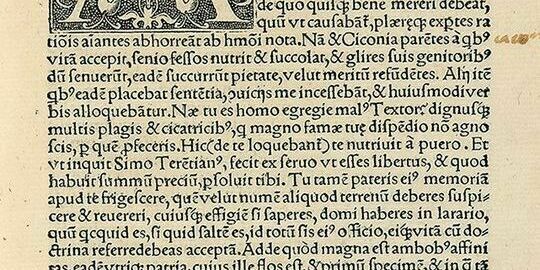 de quo quisq; bene mereri debeat,
quū vt causabāt, plæreq; exp̱tes ra
tiōis aīantes abhorreāt ab hm̄oi nota. Nā & Ciconia parētes à qbꝰ
vitā accepit, senio fessos nutrit & succolat, & glires suis genitoribꝰ
dū senuerūt, eadē succurrūt pietate, velut meritū refūdētes. Alij itē
qbꝰ eadē placebat sentētia, ꝯuicijs me incessebāt, & huiusmodi ver
bis alloquebātur. Næ tu es homo egregie malꝰ Textor, dignusq;
multis plagis & cicatricibꝰ, q magno famæ tuę dispēdio nō agno
scis, p̱ quē ꝓfeceris. Hic (de te loquebant) te nutriuit à puero. Et
vt inquit Simo Terētianꝰ, fecit ex seruo vt esses libertus, & quod
habuit summū preciū, p̱soluit tibi. Tu tamē pateris eiꝰ memoriā
apud te frigescere, quē velut numē aliquod terrenū deberes suspi-
cere & reuereri, cuiusq; effigiē si saperes, domi haberes in larario,
quū qcquid es, si quid saltē es, id totū sis eiꝰ officio, eiq; vitā cū do-
ctrina referre debeas acceptā. Adde quòd magna est ambobꝰ affini
tas, eadē vtriq; patria, cuius ille flos est, & primū specimē, & in q tā